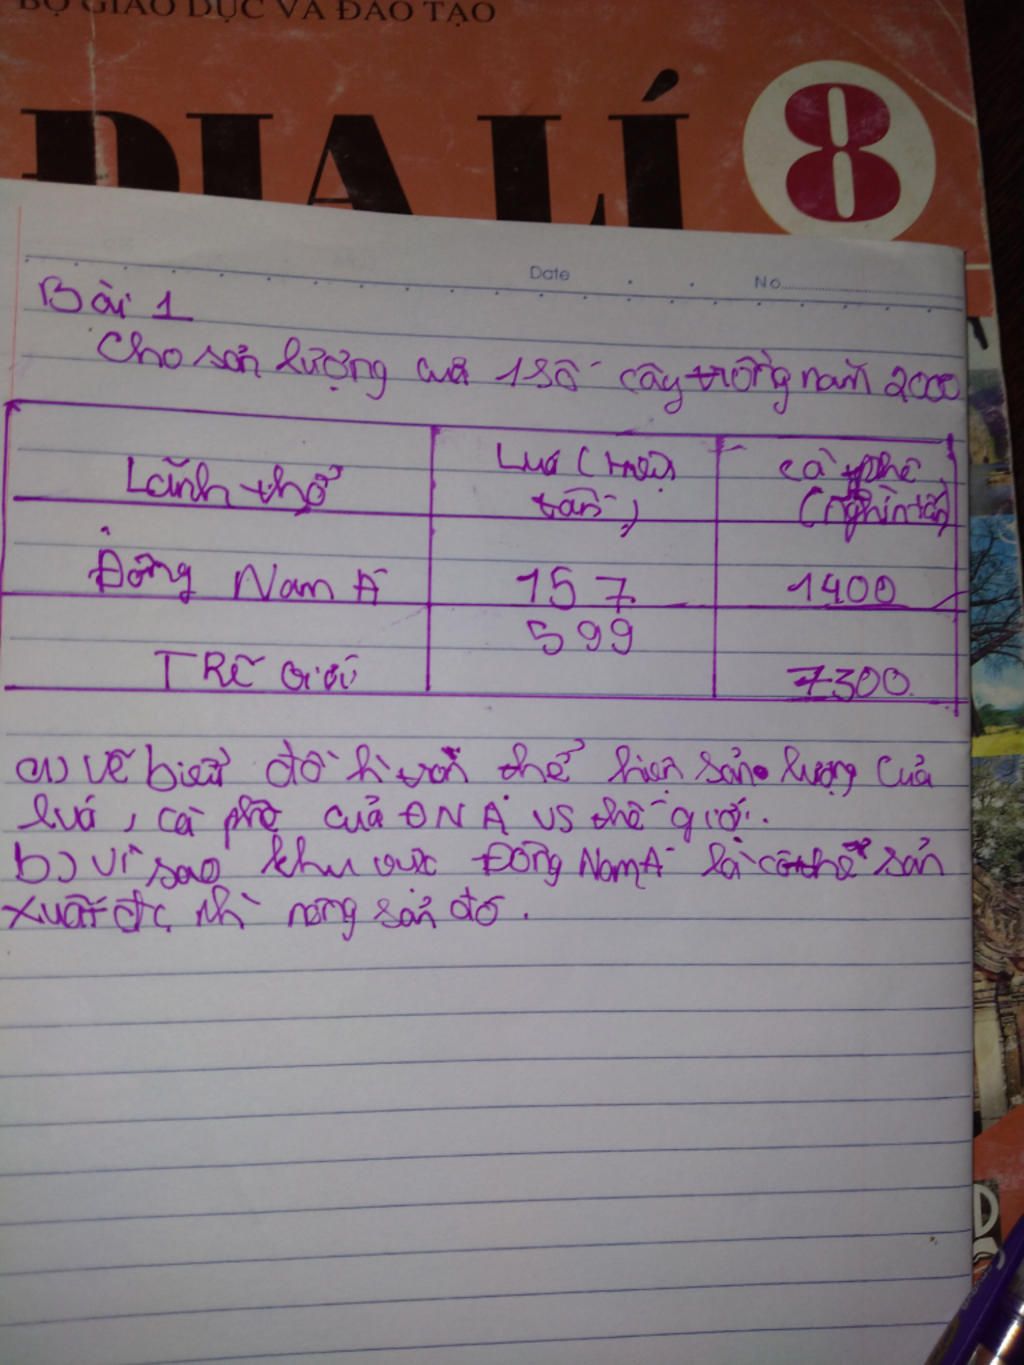 BỘ GIÁO DỤC VÀ ĐÀO TẠO
ĐỊA LÍ 8
Date No
Bài 1
Cho sản lượng của 1 số cây trồng năm 2000
Lãnh thổ Lúa (triệu tấn) cà phê (nghìn tấn)
Đông Nam Á 157 1400
Thế Giới 599 7300
a) Vẽ biểu đồ hì tròn thể hiện sản lượng của
lúa, cà phê của ĐNÁ vs thế giới.
b) Vì sao khu vực Đông Nam Á là có thể sản
xuất đc nh nông sản đó.